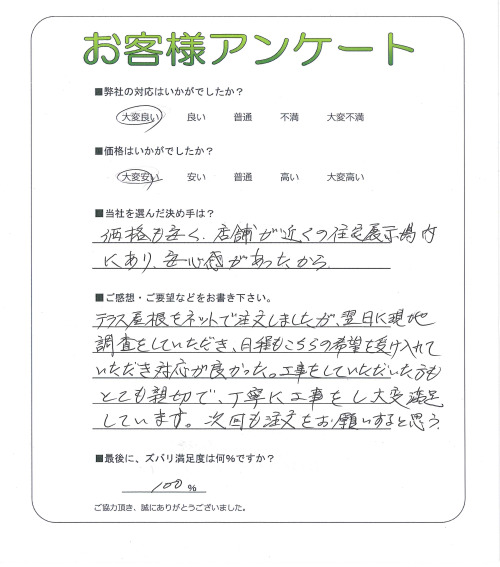 お客様アンケート
■弊社の対応はいかがでしたか？
大変良い 良い 普通 不満 大変不満
■価格はいかがでしたか？
大変安い 安い 普通 高い 大変高い
■当社を選んだ決め手は？
価格も安く、店舗が近くの住宅展示場内
にあり、安心感があったから
■ご感想・ご要望などをお書き下さい。
テラス屋根をネットで注文しましたが、翌日に現地
調査をしていただき、日程もこちらの希望を受け入れて
いただき対応が良かった。工事をしていただいた方も
とても親切で、丁寧に工事をし大変満足
しています。次回も注文をお願いすると思う。
■最後に、ズバリ満足度は何％ですか？
100 %
ご協力頂き、誠にありがとうございました。